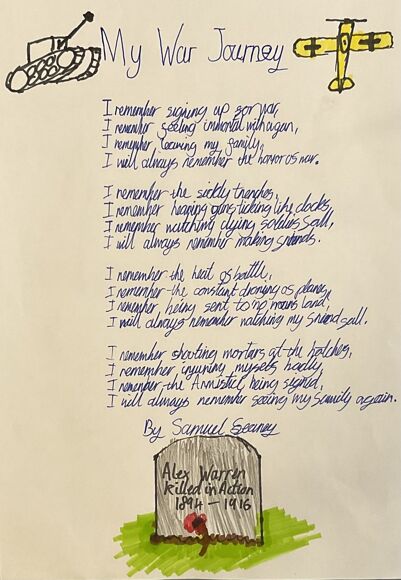 My War Journey
I remember signing up for war,
I remember feeling immortal with a gun,
I remember leaving my family,
I will always remember the horror of war.
I remember the sickly trenches,
I remember hearing guns ticking like clocks,
I remember watching dying soldiers fall,
I will always remember making friends.
I remember the heat of battle,
I remember the constant droning of planes,
I remember, being sent to no mans land,
I will always remember watching my friend fall.
I remember shooting mortars at the
I remember, injuring myself badly,
I remember the Armistice being signed,
I will always remember seeing my family again.
By Samuel
Alex Warren
Killed in Action
1894 - 1916